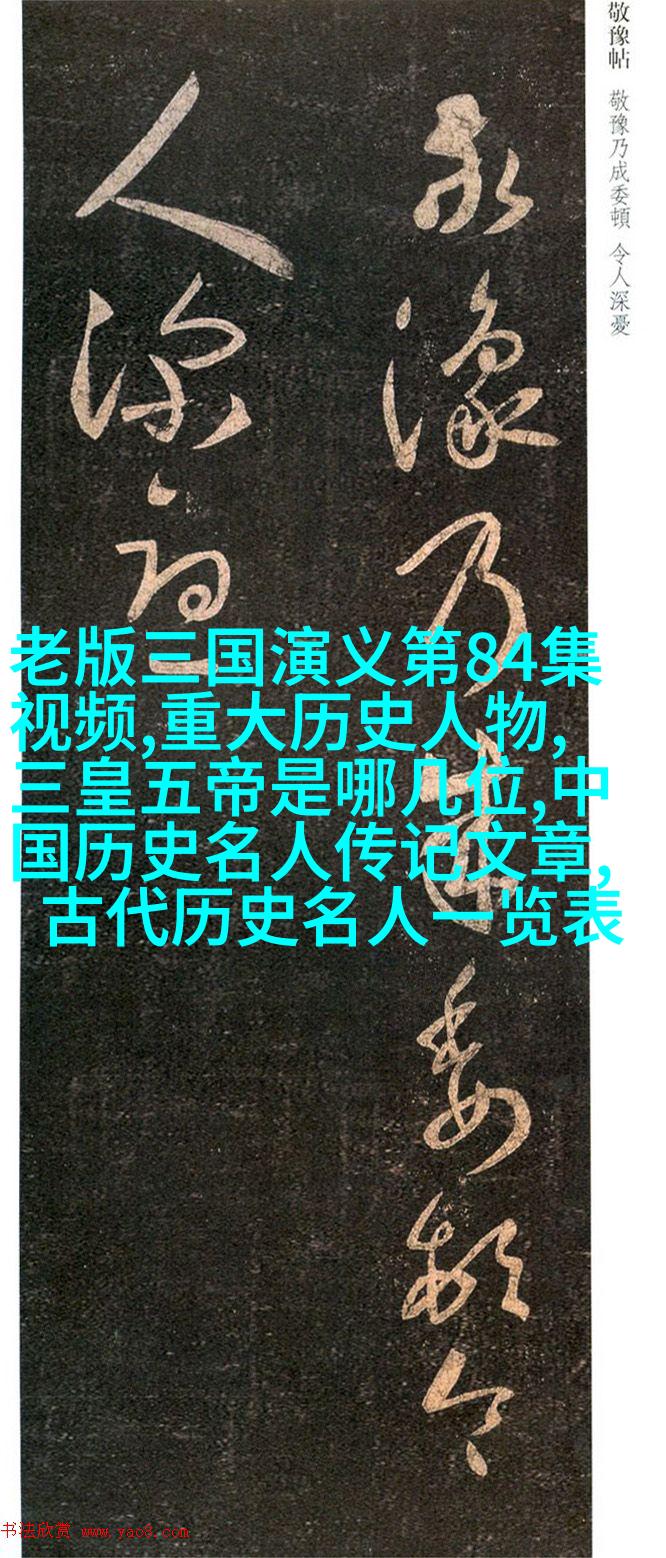 敬豫帖 敬豫乃成委頓 令人深憂
敬豫乃成委頓令
人深憂
老版三国演义第84集
视频,重大历史人物,
三皇五帝是哪几位,中
国历史名人传记文章,
古代历史名人一览表
书法欣赏 www.yac8.com